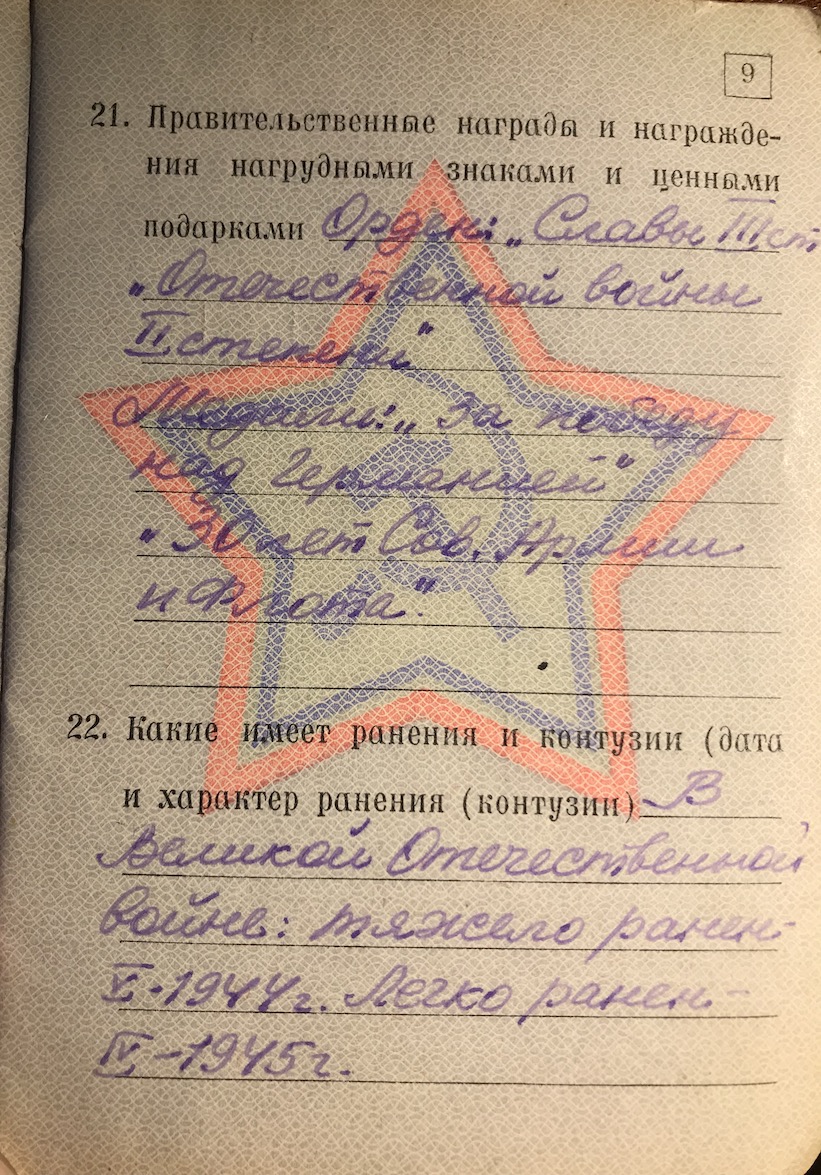 9
21. Правительственные награды и награжде-
ния нагрудными знаками и ценными
подарками Орден: „Славы III ст
„Отечественной войны
II степени"
Медали: „За победу
над Германией"
„30 лет Сов. Армии
и Флота".
22. Какие имеет ранения и контузии (дата
и характер ранения (контузии) В
Великой Отечественной
войне: тяжело ранен-
V-1944г. Легко ранен-
IV-1945г.